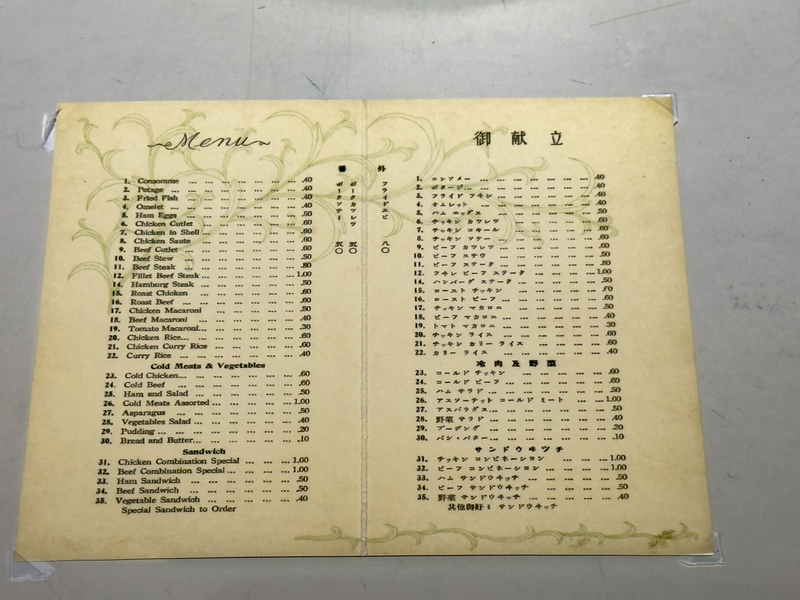 Menu
1. Consomme ... .40
2. Potage ... .40
3. Fried Fish ... .40
4. Omelet ... .40
5. Ham Eggs ... .50
6. Chicken Cutlet ... .60
7. Chicken in Shell ... .60
8. Chicken Saute ... .60
9. Beef Cutlet ... .60
10. Beef Stew ... .50
11. Beef Steak ... .80
12. Fillet Beef Steak ... 1.00
14. Hamburg Steak ... .50
15. Roast Chicken ... .60
16. Roast Beef ... .60
17. Chicken Macaroni ... .50
18. Beef Macaroni ... .40
19. Tomato Macaroni ... .30
20. Chicken Rice ... .60
21. Chicken Curry Rice ... .60
22. Curry Rice ... .40
Cold Meats & Vegetables
23. Cold Chicken ... .60
24. Cold Beef ... .60
25. Ham and Salad ... .50
26. Cold Meats Assorted ... 1.00
27. Asparagus ... .50
28. Vegetables Salad ... .40
29. Pudding ... .20
30. Bread and Butter ... .10
Sandwich
31. Chicken Combination Special ... 1.00
32. Beef Combination Special ... 1.00
33. Ham Sandwich ... .50
34. Beef Sandwich ... .50
35. Vegetable Sandwich ... .40
Special Sandwich to Order
番外
フライドエビ 八〇
ポークカツレツ 五〇
ポークソテー 五〇
御献立
1. コンソメー ... .40
2. ポタージ ... .40
3. フライド フキシ ... .40
4. オムレット ... .40
5. ハム エッグス ... .50
6. チッキン カツレツ ... .60
7. チッキン コキール ... .60
8. チッキン ソテー ... .60
9. ビーフ カツレツ ... .60
10. ビーフ ステウ ... .50
11. ビーフ ステーキ ... .80
12. フキレ ビーフ ステーキ ... 1.00
14. ハンバーグ ステーキ ... .50
15. ロースト チッキン ... .60
16. ロースト ビーフ ... .60
17. チッキン マカロニ ... .50
18. ビーフ マカロニ ... .40
19. トマト マカロニ ... .30
20. チッキン ライス ... .60
21. チッキン カリー ライス ... .60
22. カリー ライス ... .40
冷肉及野菜
23. コールド チッキン ... .60
24. コールド ビーフ ... .60
25. ハム サラド ... .50
26. アスソーテット コールド ミート ... 1.00
27. アスパラグス ... .50
28. 野菜 サラド ... .40
29. プーデング ... .20
30. パン・バター ... .10
サンドウヰツチ
31. チッキン コンビネーション ... 1.00
32. ビーフ コンビネーション ... 1.00
33. ハム サンドウヰッチ ... .50
34. ビーフ サンドウヰッチ ... .50
35. 野菜 サンドウヰッチ ... .40
其他御好ミ サンドウヰッチ